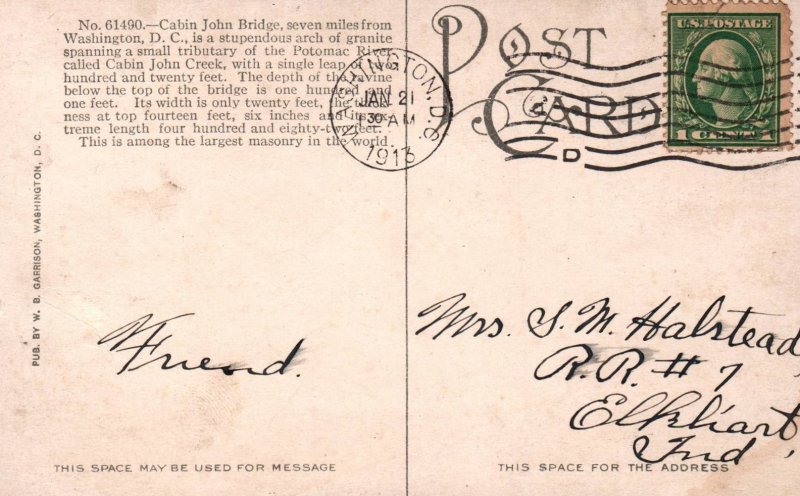 No. 61490.—Cabin John Bridge, seven miles from
Washington, D. C., is a stupendous arch of granite
spanning a small tributary of the Potomac River
called Cabin John Creek, with a single leap of two
hundred and twenty feet. The depth of the ravine
below the top of the bridge is one hundred and
one feet. Its width is only twenty feet, the thick-
ness at top fourteen feet, six inches and its ex-
treme length four hundred and eighty-two feet.
This is among the largest masonry in the world.
PUB. BY W. B. GARRISON, WASHINGTON, D. C.
Friend.
THIS SPACE MAY BE USED FOR MESSAGE
WASHINGTON, D.C.
JAN 21
30 AM
1913
POST
CARD
D
U.S. POSTAGE
1 CENT 1
Mrs. S. M. Halstead,
R. R. # 7
Elkhart,
Ind
THIS SPACE FOR THE ADDRESS